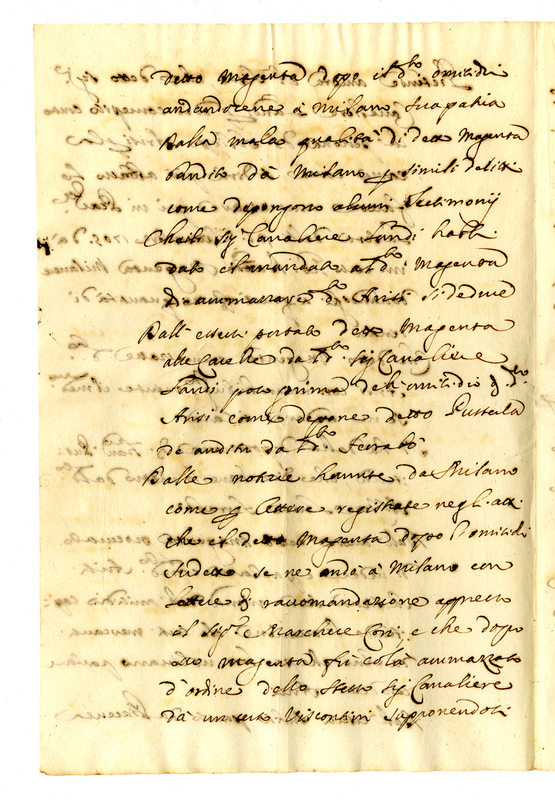 detto Magenta dopo il d.º omicidi
andandosene à Milano sua patria
Dalla mala qualità di detto Magenta
bandito dà Milano p simili delitti
come depongono alcuni Testimonij
Che il Sig. Cavaliere Landi habbi
dato il mandato al d.º Magenta
di ammazzare d.º Arisi si deduce
Dall' essersi portato detto Magenta
alle da d.º Sig. Cavaliere
Landi poco prima dell' omicidio di d.º
Arisi come depone detto Pusterla
de auditu da d.º
Dalle notizie haunte da Milano
come p lettere registrate negl' atti
che il detto Magenta dopo l'omicidi
sudetto se ne andò à Milano con
lettere di racomandazione appresso
il Sig.r Marchese e che dopo
Magenta fù colà ammazzato
d'ordine dello stesso Sig. Cavaliere
da un certo Viscontini supponendosi